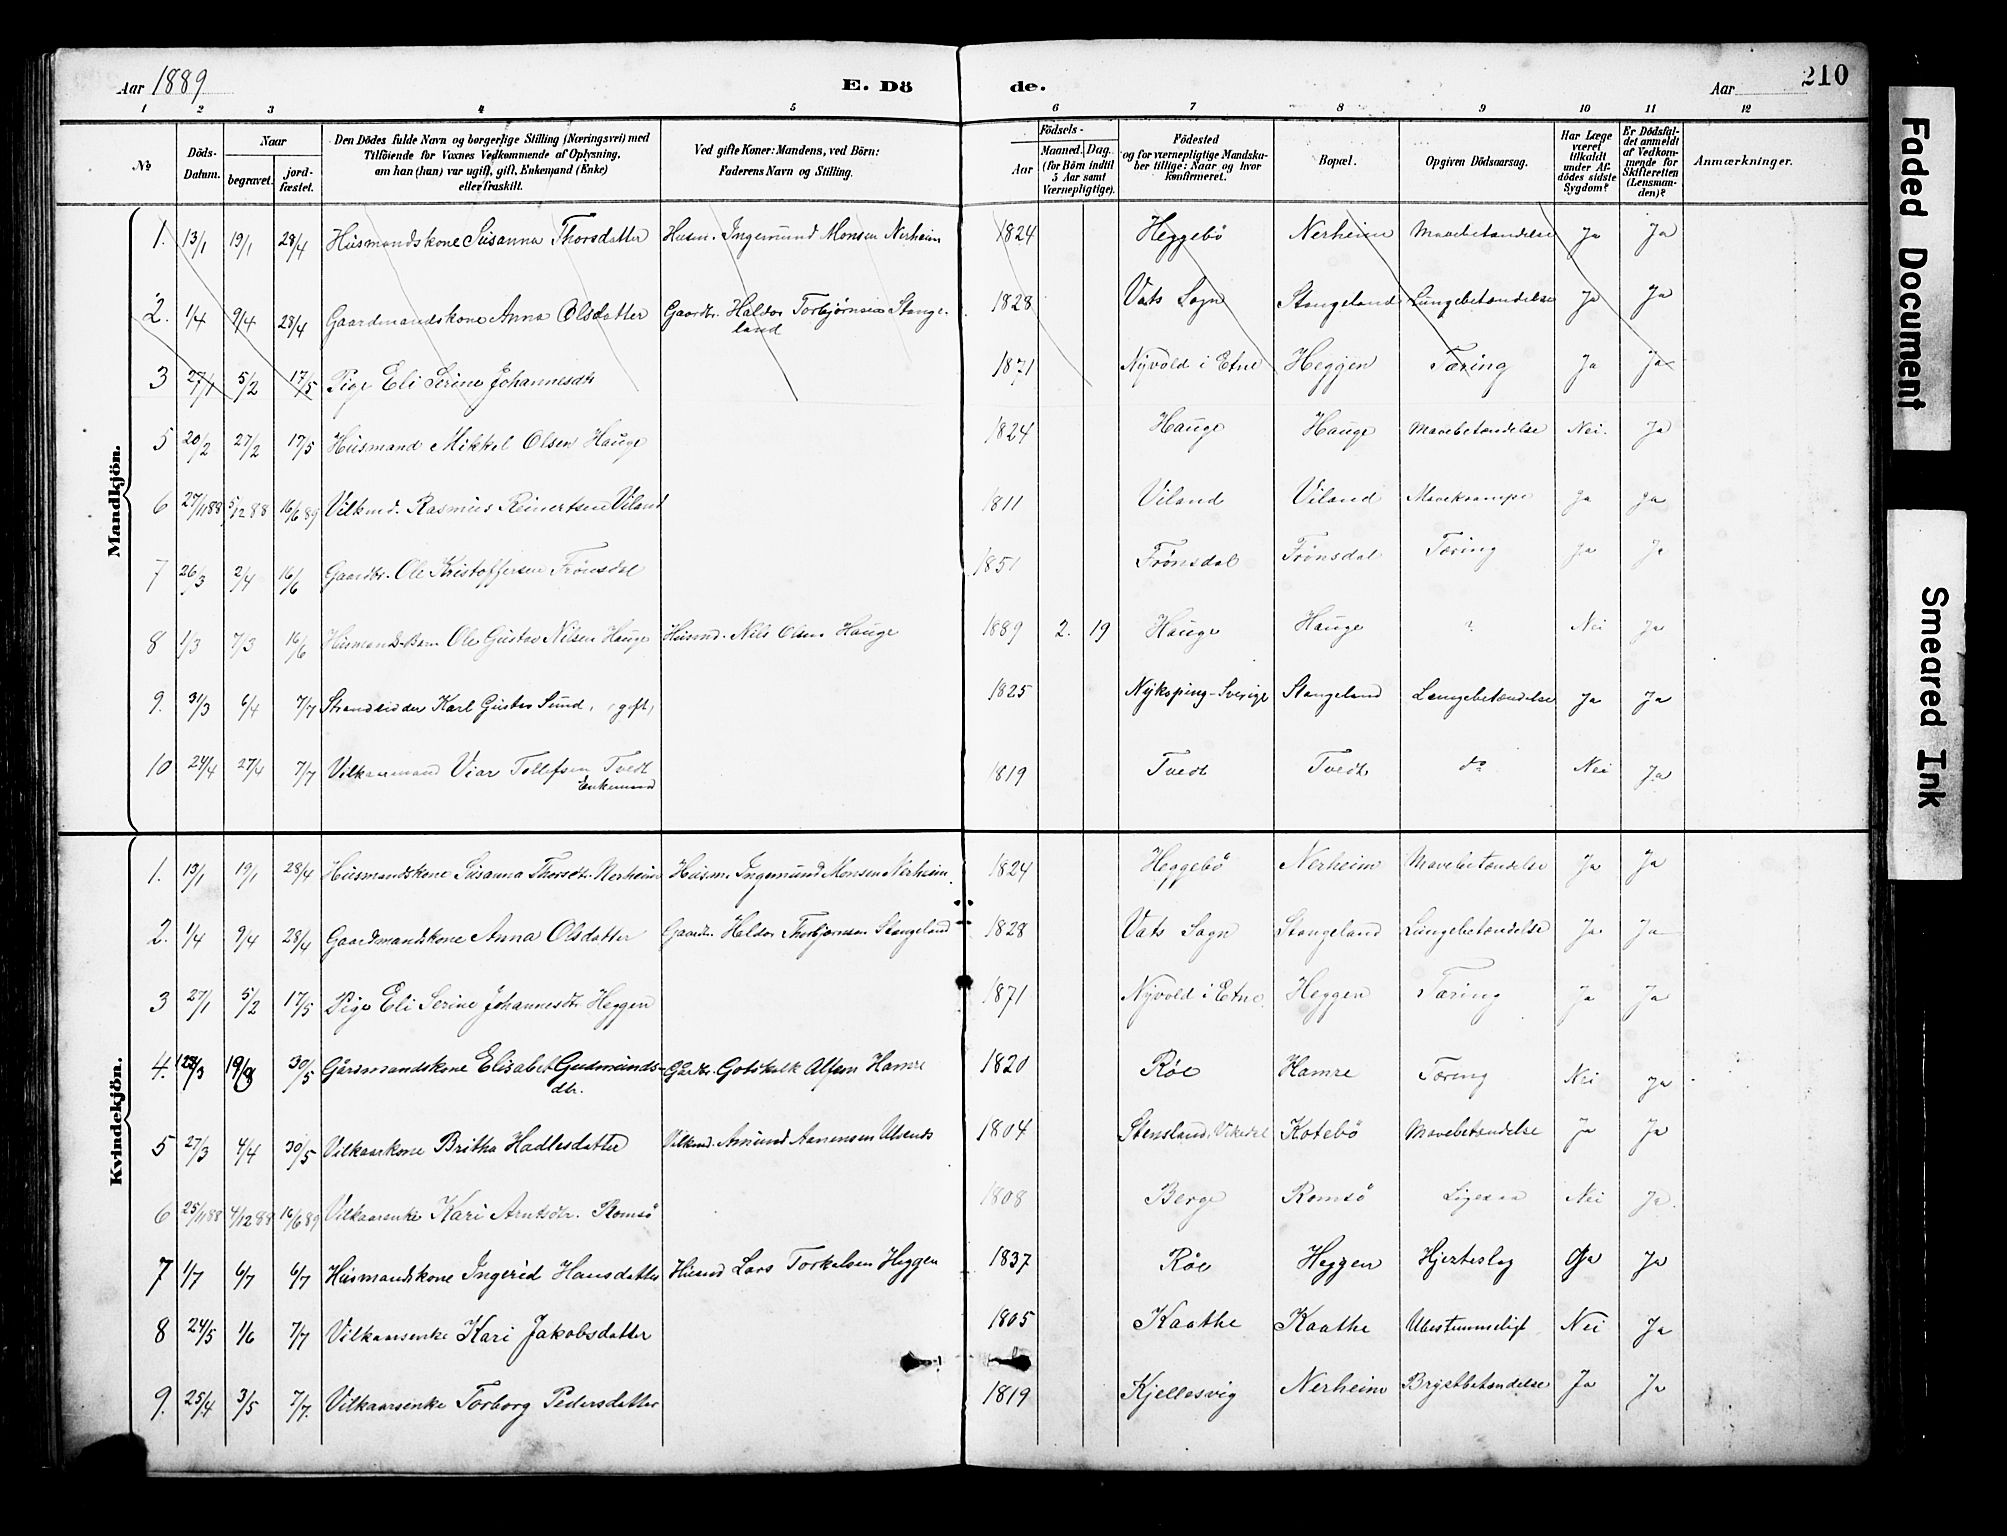 Aar 1889
E. Dö
de.
Aar
210
1 2 3 4 5 6 7 8 9 10 11 12
No.
Döds-Datum.
Naar
begravet.
jord-fæstet.
Den Dödes fulde Navn og borgerlige Stilling (Næringsvei) med
Tilföiende for Voxnes Vedkommende af Oplysning,
om han (hun) var ugift, gift, Enkemand (Enke)
eller fraskilt.
Ved gifte Koner: Mandens, ved Börn:
Faderens Navn og Stilling.
Födsels-
Aar
Maaned. Dag
(for Börn indtil
5 Aar samt
Værnepligtige).
Födested
og for værnepligtige Mandska-
ber tillige: Naar og hvor
konfirmeret.
Bopæl.
Opgiven Dödsaarsag.
Har Læge
været
tilkaldt
under Af-
dödes sidste
Sygdom?
Er Dödsfal-
det anmeldt
af Vedkom-
mende for
Skifteretten
(Lensman-
den)?
Anmærkninger.
Mandkjön.
1. 13/1 19/1 28/4 Husmandskone Susanna Thorsdatter Husm. Ingemund Monsen Nerheim 1824 Heggebö Nerheim Mavebetændelse Ja Ja
2. 1/4 9/4 28/4 Gaardmandskone Anna Olsdatter Gaardbr. Haldor Torbjørnsen Stange-
land 1828 Vats Sogn Stangeland Lungebetændelse Ja Ja
3 27/1 5/2 17/5 Pige Eli Serine Johannesdtr 1871 Nyvold i Etne Heggen Tæring Ja Ja
5 20/2 27/2 17/5 Husmand Mikkel Olsen Hauge 1824 Hauge Hauge Mavebetændelse Nei. Ja
6 27/11 88 5/12 88 16/6 89 Vilkmd. Rasmus Reinertsen Viland 1811 Viland Viland Mavekrampe Ja Ja
7 26/3 2/4 16/6 Gaardbr. Ole Kristoffersen Frønsdal 1851 Frønsdal Frønsdal Tæring Ja Ja
8 1/3 7/3 16/6 Husmands-Barn Ole Gustav Nilsen Hauge Husmd. Nils Olsen Hauge 1889 2. 19 Hauge Hauge ? Nei Ja
9. 31/3 6/4 7/7 Strandsidder Karl Gustav Sund, (gift) 1825 Nykøping-Sverige Stangeland Lungebetændelse Ja Ja
10 24/4 27/4 7/7 Vilkaarmand Viar Tollefsen Tvedt
Enkemand 1819 Tvedt Tvedt do Nei Ja
Kvindekjön.
1. 13/1 19/1 28/4 Husmandskone Susanna Thorsdtr. Nerheim Husm. Ingemund Monsen Nerheim. 1824 Heggebö Nerheim Mavebetændelse Ja Ja
2. 1/4 9/4 28/4 Gaardmandskone Anna Olsdatter Gaardbr. Haldor Thorbjørnsen Stangeland 1828 Vats Sogn Stangeland Lungebetændelse Ja Ja
3 27/1 5/2 17/5 Pige Eli Serine Johannesdtr Heggen 1871 Nyvold i Etne. Heggen Tæring Ja Ja
4. /3 30/5 Gårdmandskone Elisabet Gudmunds-
dtr. Gårdbr. Gotskalk Alfsen Hamre 1820 Røe Hamre Tæring Nei Ja
5 27/3 4/4 30/5 Vilkaarkone Britha Hadlesdatter Vilkmd. Amund Aanensen 1804 Stensland, Vikedal Kotebö Mavebetændelse Ja Ja
6 25/11 88 4/12 88 16/6 89 Vilkaarsenke Kari Arntsdtr. Romsö 1808 Berge Romsö Nei Ja.
7 1/7 6/7 6/7 Husmandskone Ingerid Hansdatter Husmd Lars Torkelsen Heggen 1837 Røe Heggen Hjerteslag Ja Ja
8 24/5 1/6 7/7 Vilkaarsenke Kari Jakobsdatter 1805 Kaathe Kaathe Ubestemmeligt Nei Ja
9. 25/4 3/5 7/7. Vilkaarsenke Torborg Pedersdatter 1819 Kjellesvig Nerheim Brystbetændelse Ja Ja
Faded Document
Smeared Ink